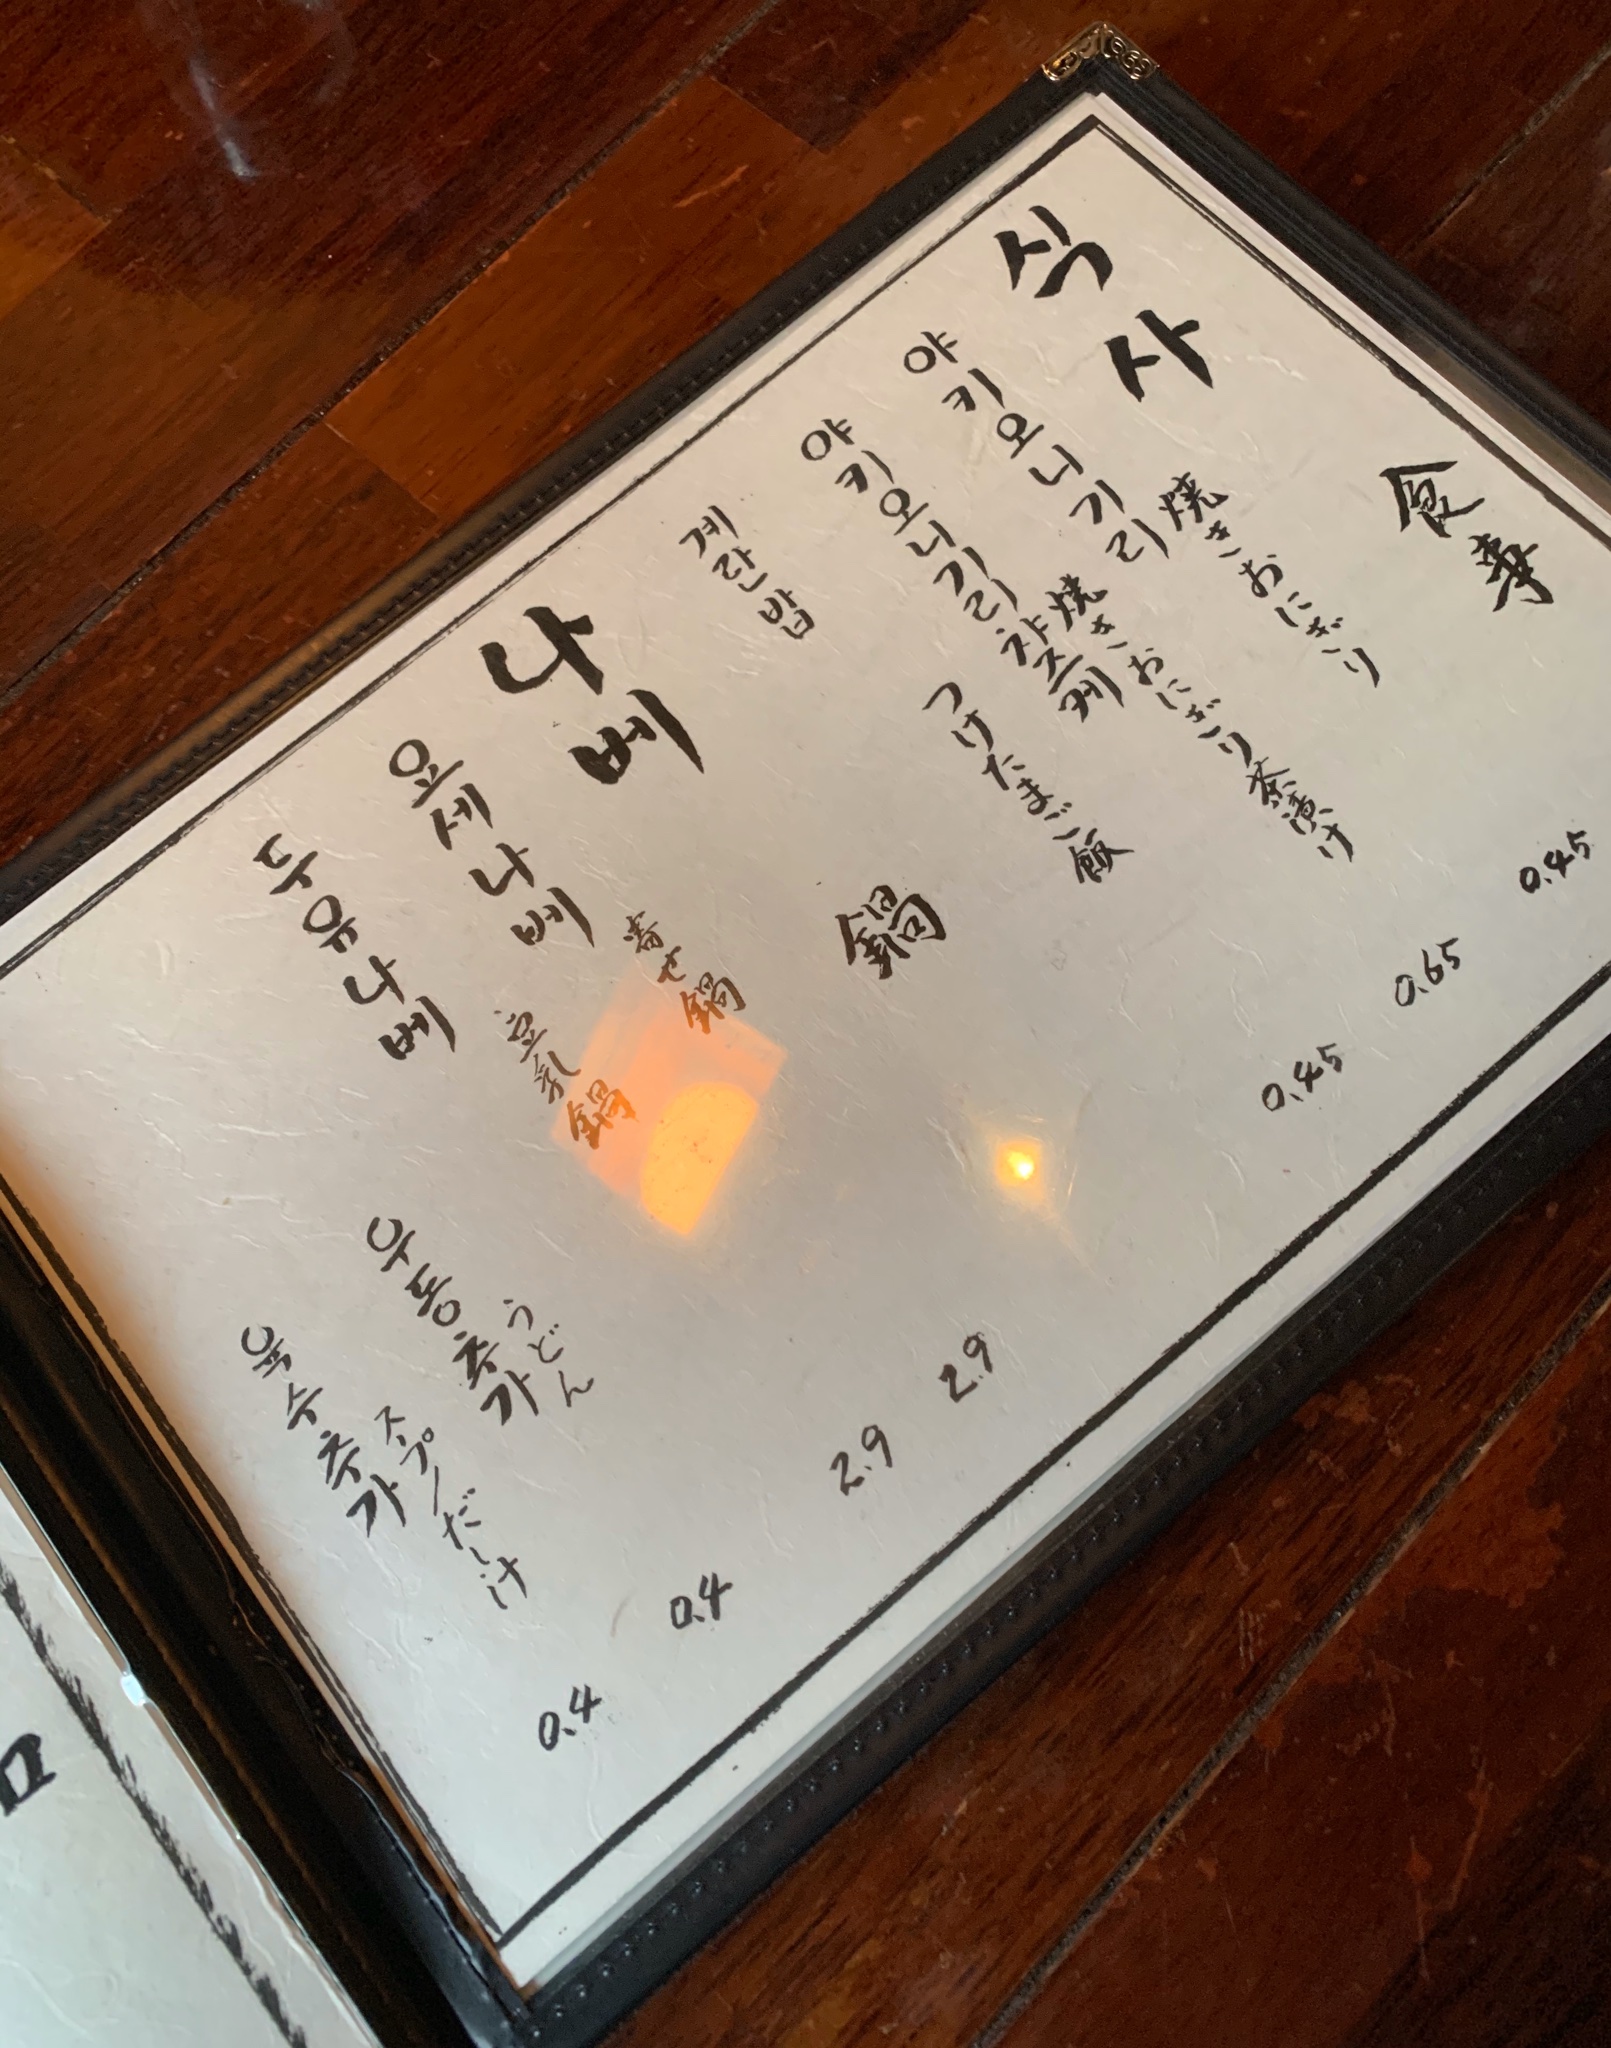 식사 食事
야키오니기리 焼きおにぎり 0.45
야키오니기리챠즈케 焼きおにぎり茶漬け 0.65
계란밥 つけたまご飯 0.45
나베 鍋
요세나베 寄せ鍋 2.9
두유나베 豆乳鍋 2.9
우동추가 うどん 0.4
육수추가 スプ/だし汁 0.4